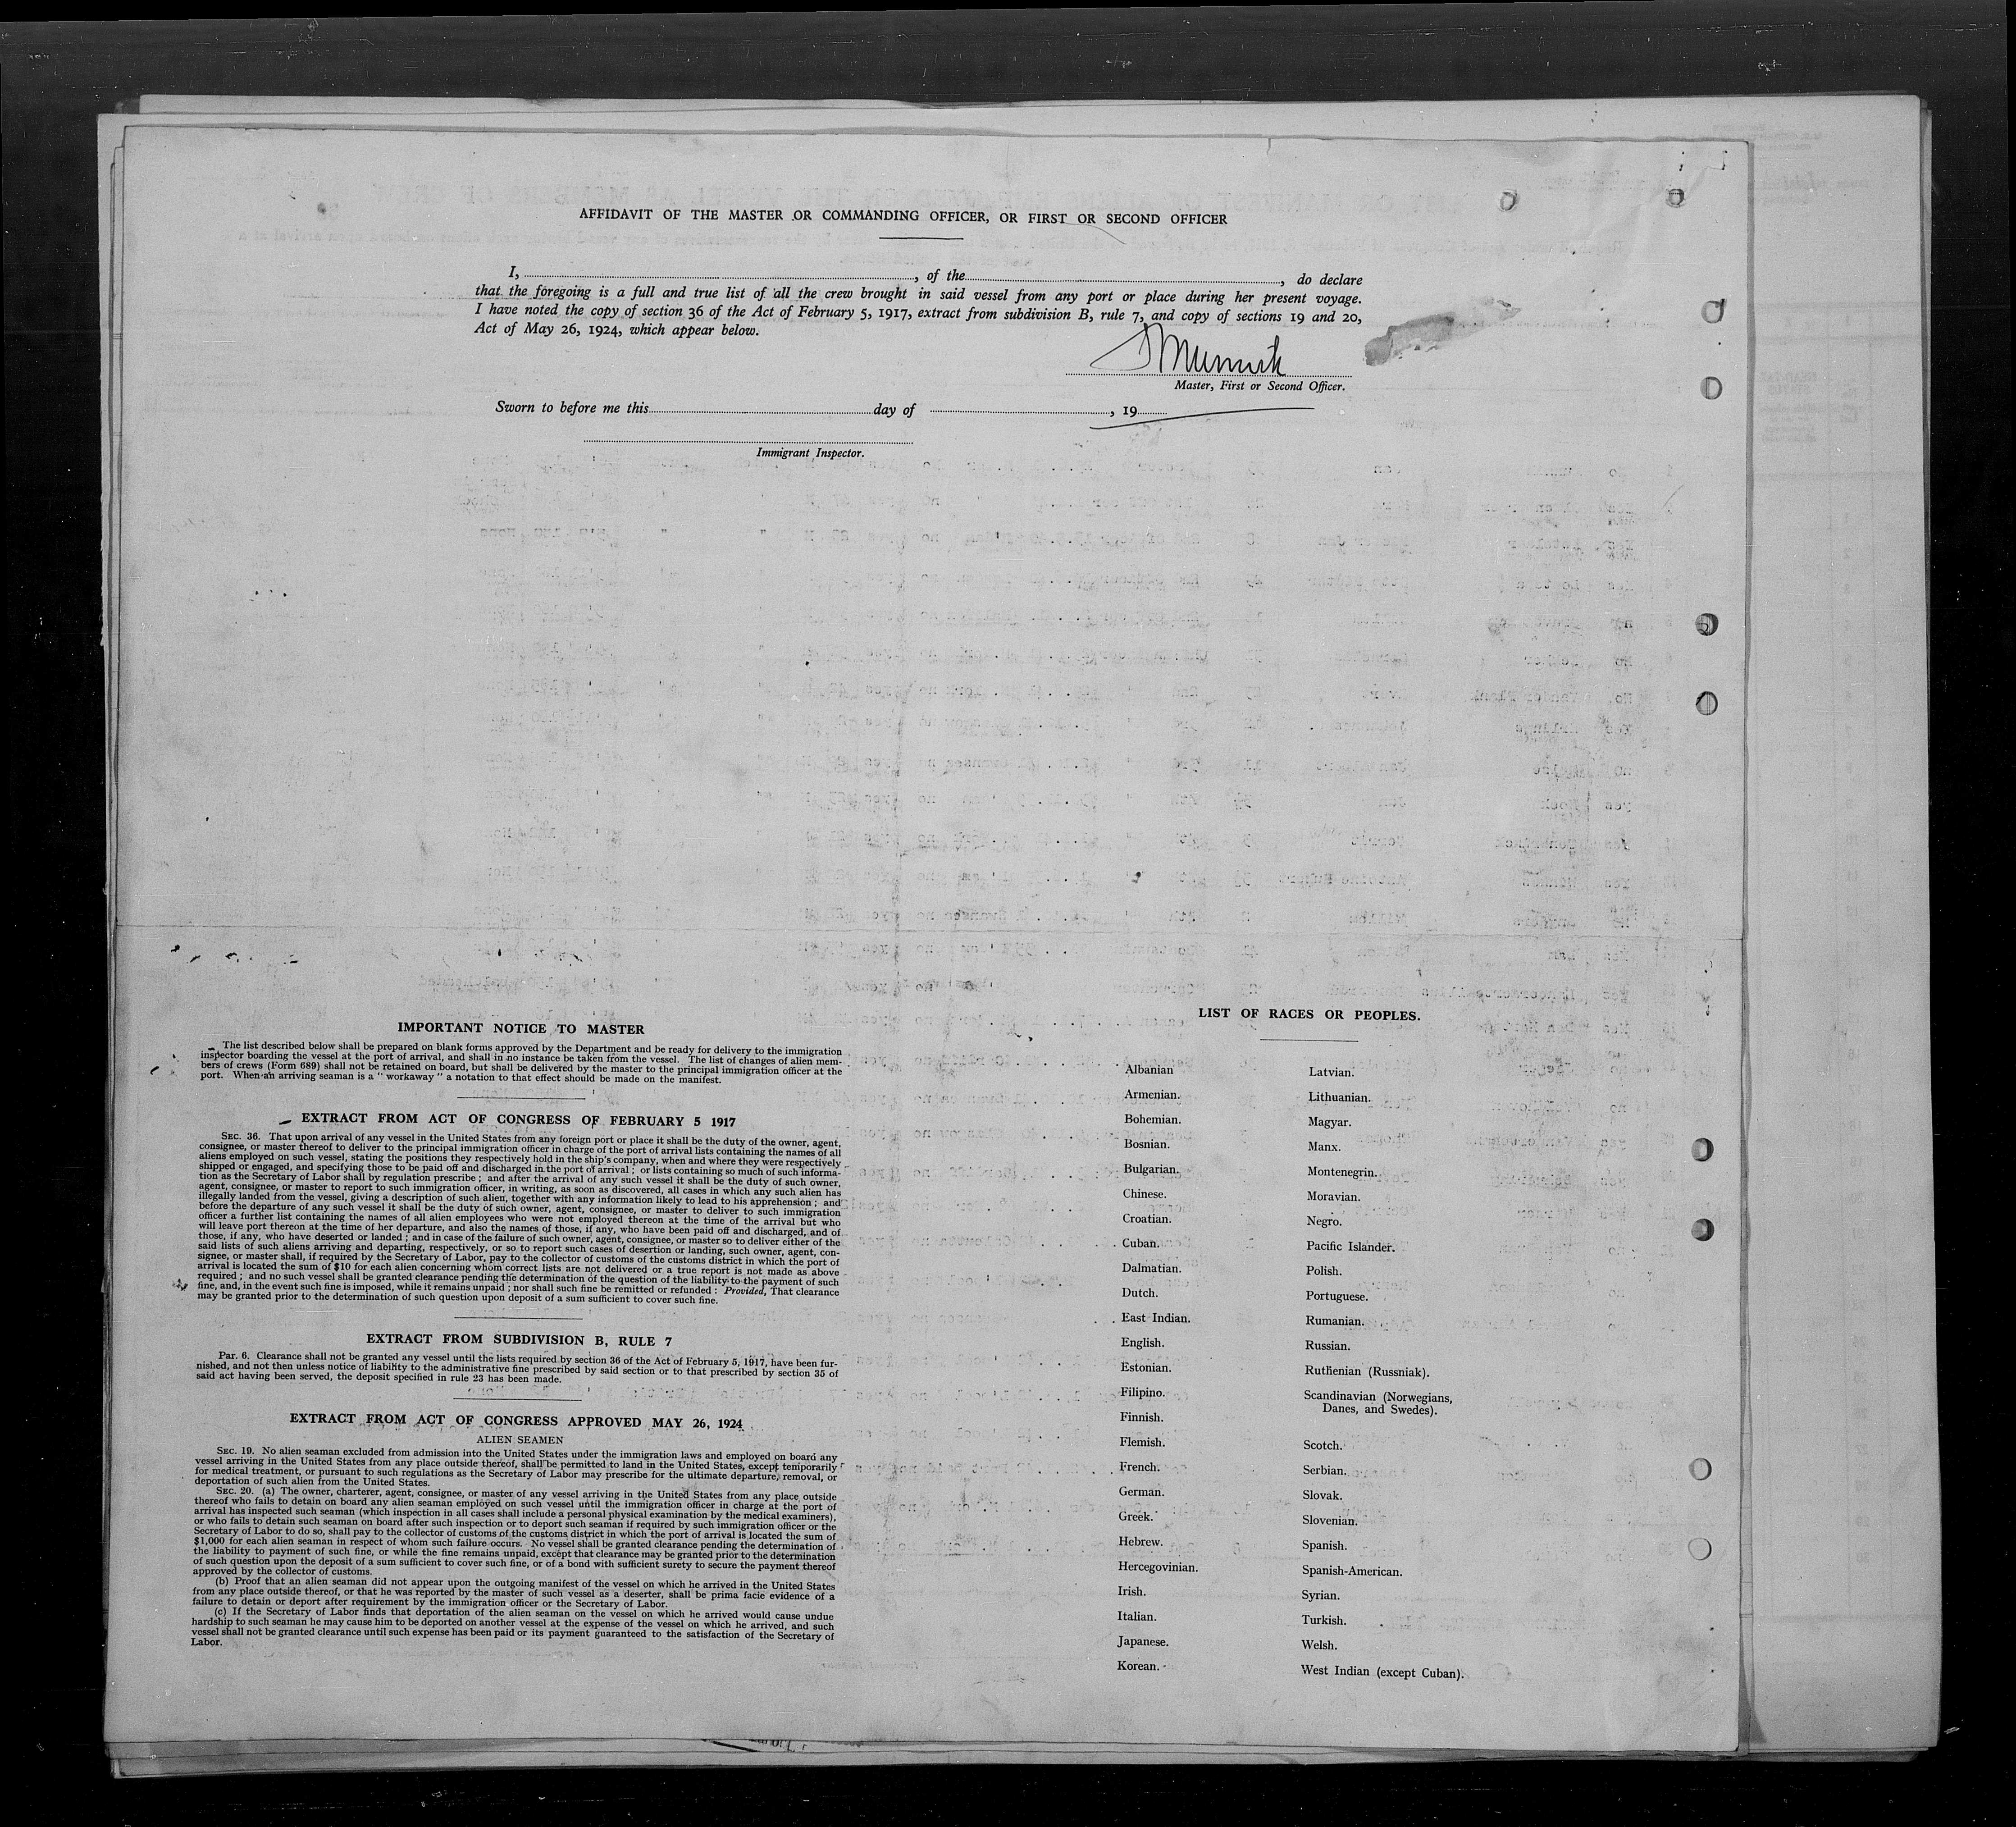 AFFIDAVIT OF THE MASTER OR COMMANDING OFFICER, OR FIRST OR SECOND OFFICER
I, , of the , do declare
that the foregoing is a full and true list of all the crew brought in said vessel from any port or place during her present voyage.
I have noted the copy of section 36 of the Act of February 5, 1917, extract from subdivision B, rule 7, and copy of sections 19 and 20,
Act of May 26, 1924, which appear below.
Master, First or Second Officer.
Sworn to before me this day of , 19
Immigrant Inspector.
IMPORTANT NOTICE TO MASTER
The list described below shall be prepared on blank forms approved by the Department and be ready for delivery to the immigration
inspector boarding the vessel at the port of arrival, and shall in no instance be taken from the vessel. The list of changes of alien mem-
bers of crews (Form 689) shall not be retained on board, but shall be delivered by the master to the principal immigration officer at the
port. When an arriving seaman is a " workaway " a notation to that effect should be made on the manifest.
EXTRACT FROM ACT OF CONGRESS OF FEBRUARY 5 1917
SEC. 36. That upon arrival of any vessel in the United States from any foreign port or place it shall be the duty of the owner, agent,
consignee, or master thereof to deliver to the principal immigration officer in charge of the port of arrival lists containing the names of all
aliens employed on such vessel, stating the positions they respectively hold in the ship's company, when and where they were respectively
shipped or engaged, and specifying those to be paid off and discharged in the port of arrival ; or lists containing so much of such informa-
tion as the Secretary of Labor shall by regulation prescribe ; and after the arrival of any such vessel it shall be the duty of such owner,
agent, consignee, or master to report to such immigration officer, in writing, as soon as discovered, all cases in which any such alien has
illegally landed from the vessel, giving a description of such alien, together with any information likely to lead to his apprehension ; and
before the departure of any such vessel it shall be the duty of such owner, agent, consignee, or master to deliver to such immigration
officer a further list containing the names of all alien employees who were not employed thereon at the time of the arrival but who
will leave port thereon at the time of her departure, and also the names of those, if any, who have been paid off and discharged, and of
those, if any, who have deserted or landed ; and in case of the failure of such owner, agent, consignee, or master so to deliver either of the
said lists of such aliens arriving and departing, respectively, or so to report such cases of desertion or landing, such owner, agent, con-
signee, or master shall, if required by the Secretary of Labor, pay to the collector of customs of the customs district in which the port of
arrival is located the sum of $10 for each alien concerning whom correct lists are not delivered or a true report is not made as above
required ; and no such vessel shall be granted clearance pending the determination of the question of the liability to the payment of such
fine, and, in the event such fine is imposed, while it remains unpaid ; nor shall such fine be remitted or refunded : Provided, That clearance
may be granted prior to the determination of such question upon deposit of a sum sufficient to cover such fine.
EXTRACT FROM SUBDIVISION B, RULE 7
PAR. 6. Clearance shall not be granted any vessel until the lists required by section 36 of the Act of February 5, 1917, have been fur-
nished, and not then unless notice of liability to the administrative fine prescribed by said section or to that prescribed by section 35 of
said act having been served, the deposit specified in rule 23 has been made.
EXTRACT FROM ACT OF CONGRESS APPROVED MAY 26, 1924
ALIEN SEAMEN
SEC. 19. No alien seaman excluded from admission into the United States under the immigration laws and employed on board any
vessel arriving in the United States from any place outside thereof, shall be permitted to land in the United States, except temporarily
for medical treatment, or pursuant to such regulations as the Secretary of Labor may prescribe for the ultimate departure, removal, or
deportation of such alien from the United States.
SEC. 20. (a) The owner, charterer, agent, consignee, or master of any vessel arriving in the United States from any place outside
thereof who fails to detain on board any alien seaman employed on such vessel until the immigration officer in charge at the port of
arrival has inspected such seaman (which inspection in all cases shall include a personal physical examination by the medical examiners),
or who fails to detain such seaman on board after such inspection or to deport such seaman if required by such immigration officer or the
Secretary of Labor to do so, shall pay to the collector of customs of the customs district in which the port of arrival is located the sum of
$1,000 for each alien seaman in respect of whom such failure occurs. No vessel shall be granted clearance pending the determination of
the liability to payment of such fine, or while the fine remains unpaid, except that clearance may be granted prior to the determination
of such question upon the deposit of a sum sufficient to cover such fine, or of a bond with sufficient surety to secure the payment thereof
approved by the collector of customs.
(b) Proof that an alien seaman did not appear upon the outgoing manifest of the vessel on which he arrived in the United States
from any place outside thereof, or that he was reported by the master of such vessel as a deserter, shall be prima facie evidence of a
failure to detain or deport after requirement by the immigration officer or the Secretary of Labor.
(c) If the Secretary of Labor finds that deportation of the alien seaman on the vessel on which he arrived would cause undue
hardship to such seaman he may cause him to be deported on another vessel at the expense of the vessel on which he arrived, and such
vessel shall not be granted clearance until such expense has been paid or its payment guaranteed to the satisfaction of the Secretary of
Labor.
LIST OF RACES OR PEOPLES.
Albanian
Armenian.
Bohemian.
Bosnian.
Bulgarian.
Chinese.
Croatian.
Cuban.
Dalmatian.
Dutch.
East Indian.
English.
Estonian.
Filipino.
Finnish.
Flemish.
French.
German.
Greek.
Hebrew.
Hercegovinian.
Irish.
Italian.
Japanese.
Korean.
Latvian.
Lithuanian.
Magyar.
Manx.
Montenegrin.
Moravian.
Negro.
Pacific Islander.
Polish.
Portuguese.
Rumanian.
Russian.
Ruthenian (Russniak).
Scandinavian (Norwegians,
Danes, and Swedes).
Scotch.
Serbian.
Slovak.
Slovenian.
Spanish.
Spanish-American.
Syrian.
Turkish.
Welsh.
West Indian (except Cuban).